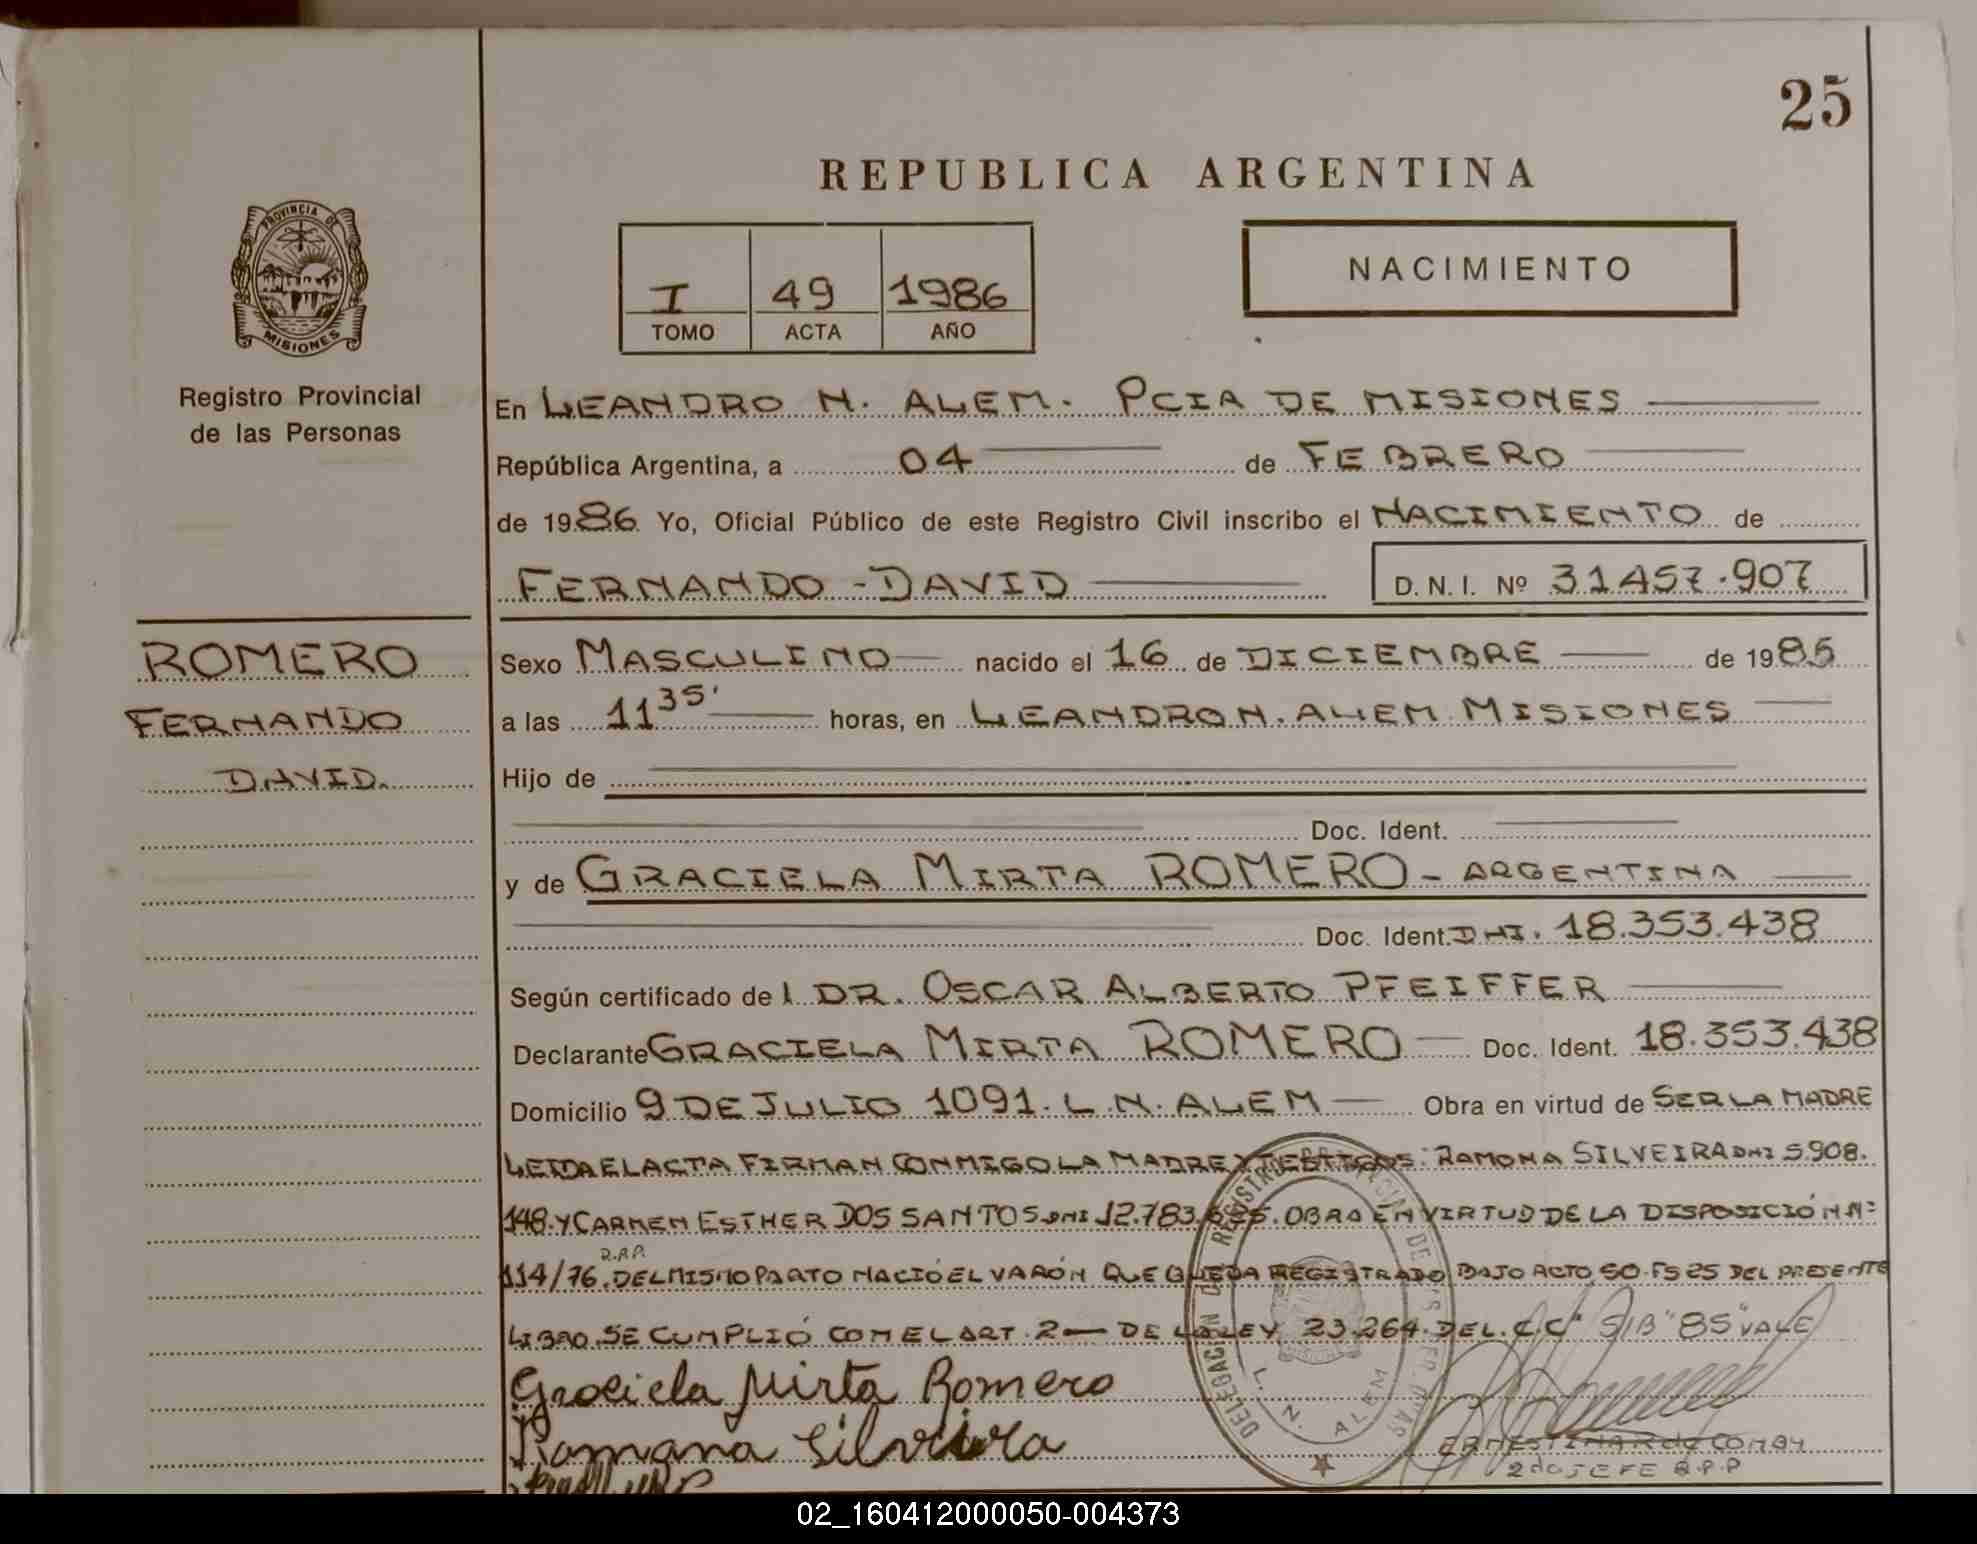 25
REPUBLICA ARGENTINA
PROVINCIA DE
MISIONES
I 49 1986
TOMO ACTA AÑO
NACIMIENTO
Registro Provincial
de las Personas
En LEANDRO N. ALEM. PCIA DE MISIONES
República Argentina, a 04 de FEBRERO
de 1986. Yo, Oficial Público de este Registro Civil inscribo el NACIMIENTO de
FERNANDO-DAVID D.N.I. Nº 31457.907
ROMERO
FERNANDO
DAVID.
Sexo MASCULINO nacido el 16 de DICIEMBRE de 1985
a las 11 35' horas, en LEANDRO N. ALEM MISIONES
Hijo de
Doc. Ident.
y de GRACIELA MIRTA ROMERO - ARGENTINA
Doc. Ident. DNI. 18.353.438
Según certificado del DR. OSCAR ALBERTO PFEIFFER
Declarante GRACIELA MIRTA ROMERO Doc. Ident. 18.353.438
Domicilio 9 DE JULIO 1091. L.N. ALEM Obra en virtud de SER LA MADRE
LEIDA EL ACTA FIRMAN CONMIGO LA MADRE Y TESTIGOS: RAMONA SILVEIRA DNI 5.908.
148. Y CARMEN ESTHER DOS SANTOS DNI 12.783. OBRA EN VIRTUD DE LA DISPOSICIÓN Nº
114/76. R.P.P. DEL MISMO PARTO NACIÓ EL VARÓN QUE QUEDA REGISTRADO BAJO ACTO 50 FS 25 DEL PRESENTE
LIBRO. SE CUMPLIÓ CON EL ART. 2 DE LA LEY 23.264 DEL C.C. S/B "85" VALE
Graciela Mirta Romero
Ramona Silveira
DELEGACION DE REGISTRO PROVINCIAL DE LAS PERSONAS
L. N. ALEM
2do JEFE R.P.P
02_160412000050-004373